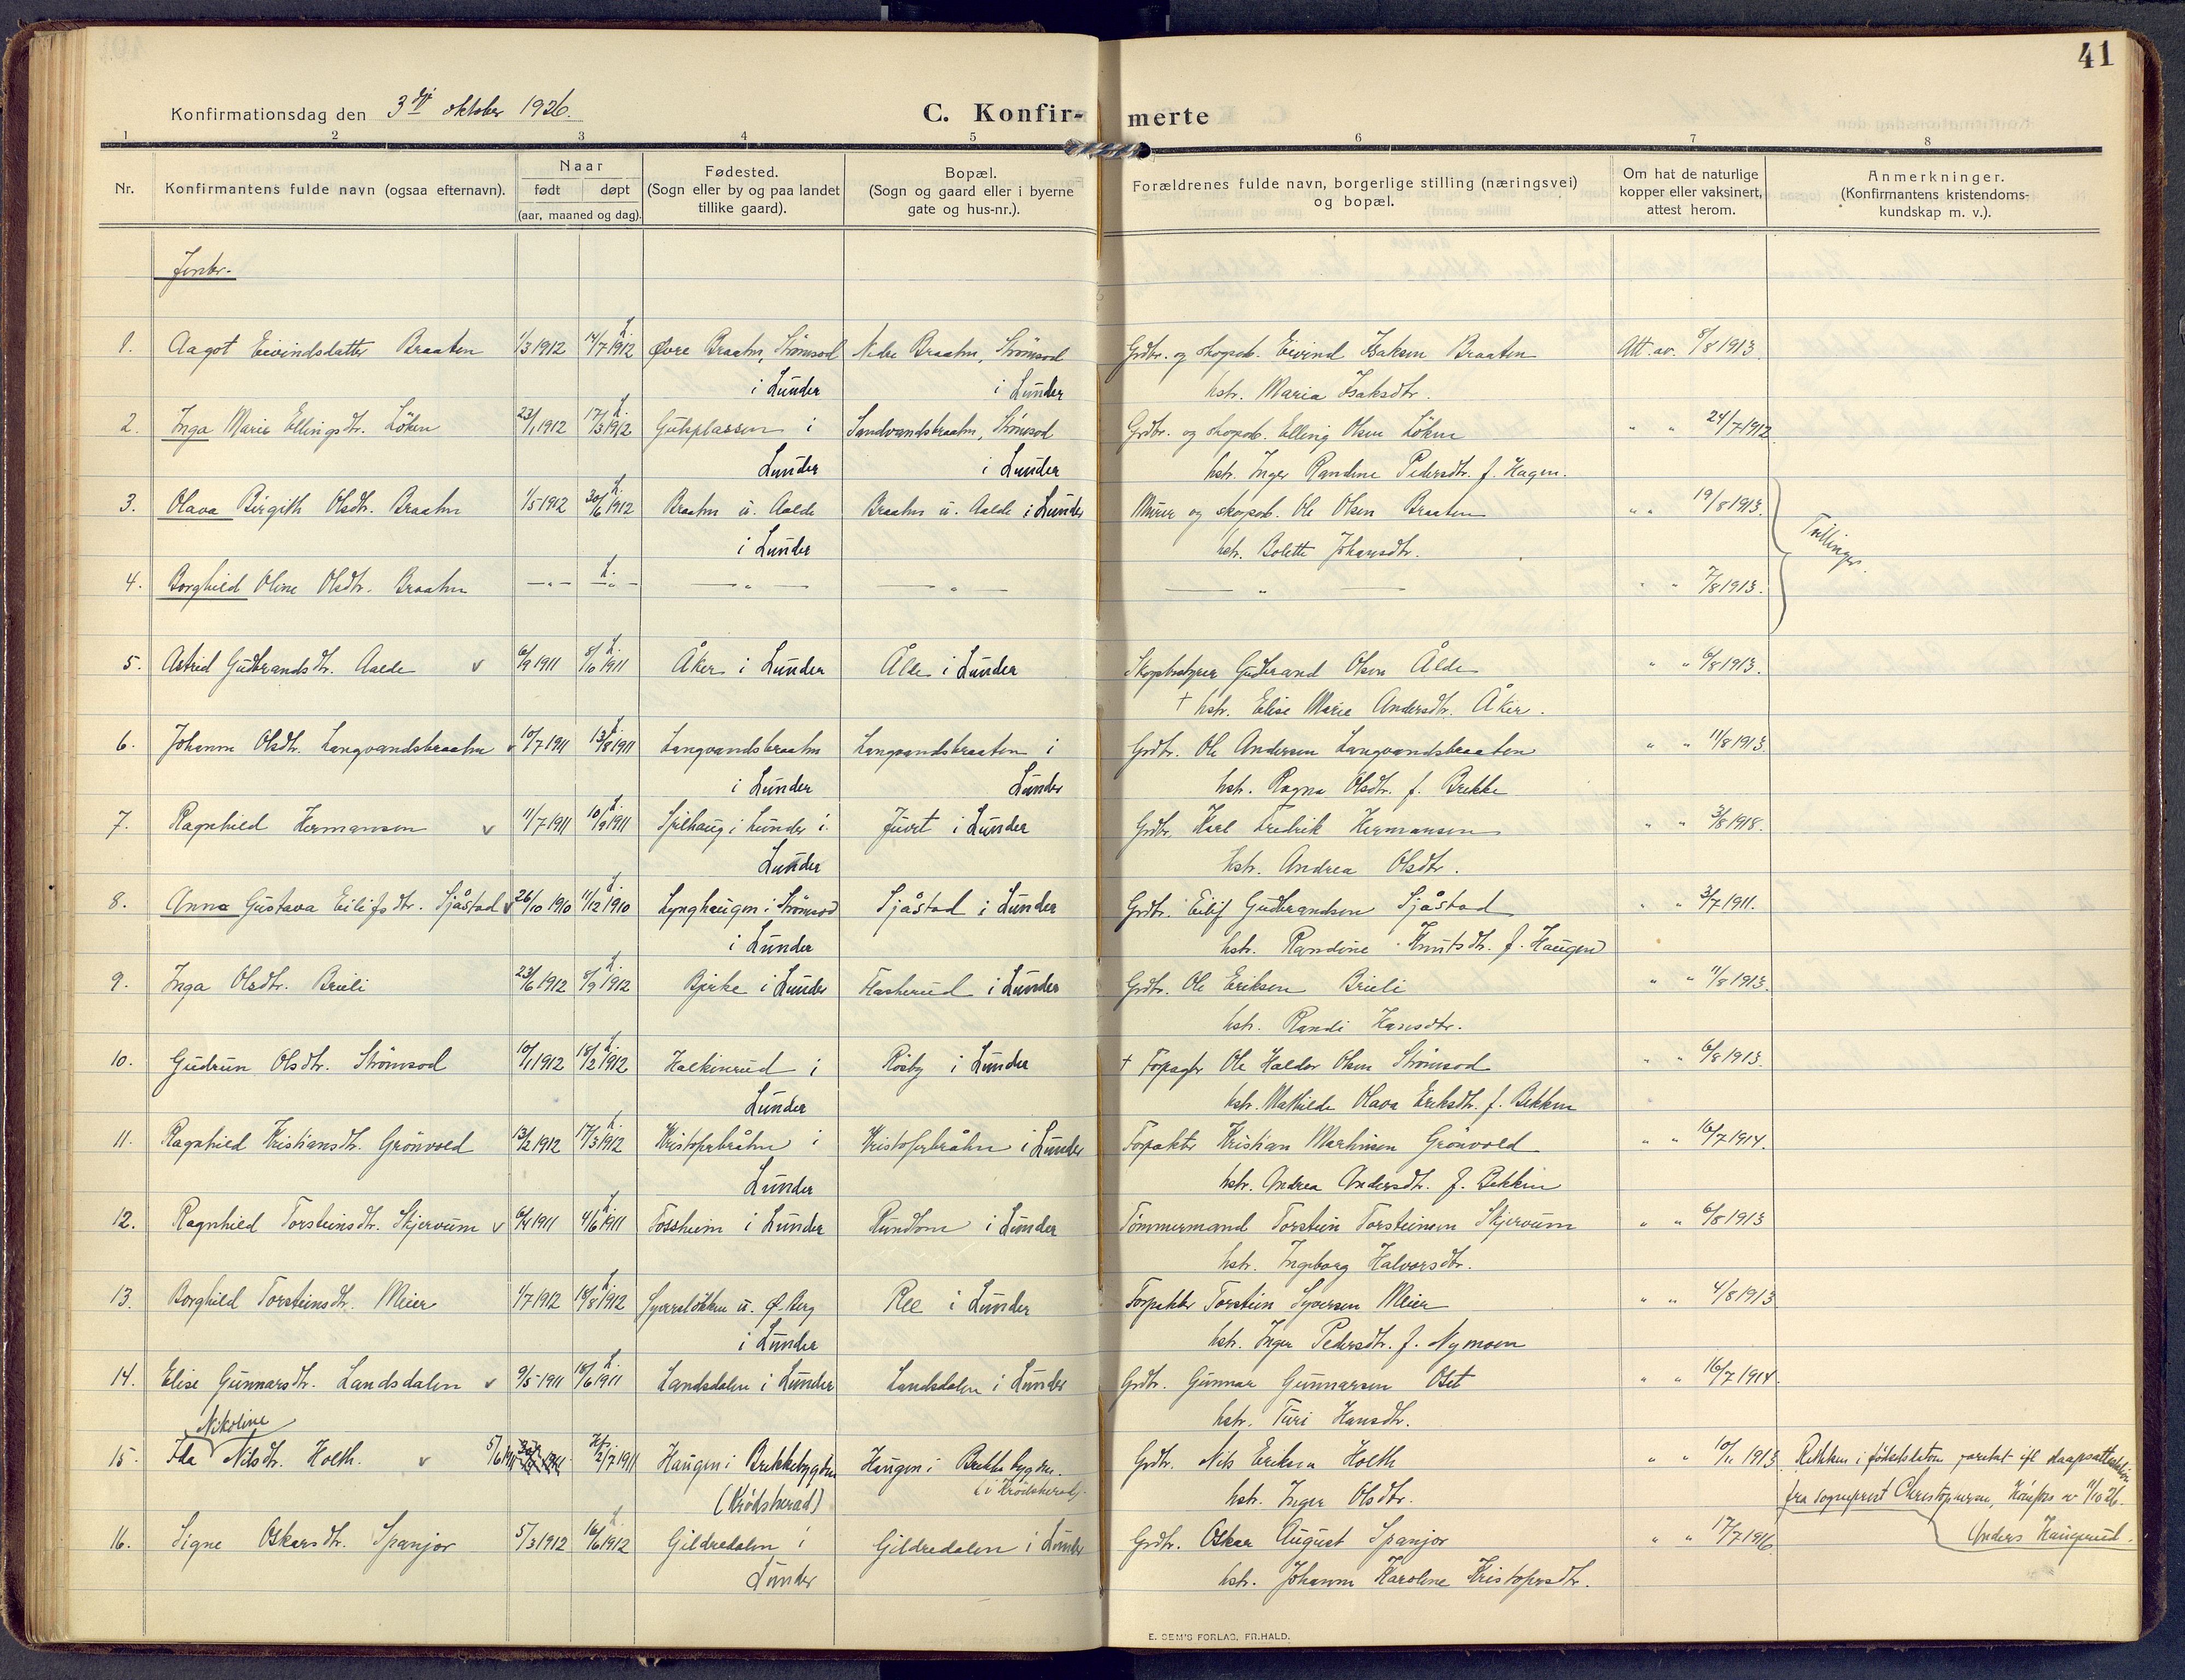 41
Konfirmationsdag den 3dje oktober 1926.
C. Konfir-
merte
1 2 3 4 5 6 7 8
Nr.
Konfirmantens fulde navn (ogsaa efternavn).
Naar
født døpt
(aar, maaned og dag).
Fødested.
(Sogn eller by og paa landet
tillike gaard).
Bopæl.
(Sogn og gaard eller i byerne
gate og hus-nr.).
Forældrenes fulde navn, borgerlige stilling (næringsvei)
og bopæl.
Om hat de naturlige
kopper eller vaksinert,
attest herom.
Anmerkninger.
(Konfirmantens kristendoms-
kundskap m. v.).
Jenter.
1. Aagot Eivindsdatter Braaten 1/3 1912 14/7 1912 Øvre Braaten, Strömsod Nedre Braaten, Strömsod Grdbr. og skogsarb. Eivind Isaksen Braaten Att. av. 8/8 1913.
i Lunder i Lunder hstr. Maria Isaksdtr.
2. Inga Marie Ellingsdtr. Löken 23/1 1912 17/3 1912 Gulsplassen i Sandvandsbraaten, Strömsod Grdbr. og skogsarb. Elling Olsen Löken " " 24/7 1912
Lunder i Lunder hstr. Inger Randine Pedersdtr. f. Hagen.
3. Olava Birgith Olsdtr. Braaten 1/5 1912 30/6 1912 Braaten u. Aalde Braaten u. Aalde i Lunder Murer og skogsarb. Ole Olsen Braaten " " 19/8 1913.
i Lunder hstr. Bolette Johansdtr. Trillinger.
4. Borghild Oline Olsdtr. Braaten — " — — " — — " — " — " — " " 7/8 1913.
5. Astrid Gudbrandsdtr. Aalde v 6/9 1911 8/10 1911 Åker i Lunder Ålde i Lunder Skogbestyrer Gudbrand Olsen Ålde " " 6/8 1913.
† hstr. Elise Marie Andersdtr. Åker.
6. Johanne Olsdtr. Langvandsbraaten v 10/7 1911 13/8 1911 Langvandsbraaten Langvandsbraaten i Grdbr. Ole Andersen Langvandsbraaten " " 11/8 1913.
i Lunder Lunder hstr. Ragna Olsdtr. f. Brekke
7. Ragnhild Hermansen v 11/7 1911 10/9 1911 Spilhaug i Lunder i Juvet i Lunder Grdbr. Karl Fredrik Hermansen " " 3/8 1918.
Lunder hstr. Andrea Olsdtr.
8. Anna Gustava Eilifsdtr. Sjåstad v 26/10 1910 11/12 1910 Lynghaugen i Strömsod Sjåstad i Lunder Grdbr. Eilif Gudbrandsen Sjåstad " " 3/7 1911.
i Lunder hstr. Randine Knutsdtr. f. Haugen
9. Inga Olsdtr. Brueli 23/6 1912 8/9 1912 Bjerke i Lunder Flaskerud i Lunder Grdbr. Ole Eriksen Brueli " " 11/8 1913.
hstr. Randi Hansdtr.
10. Gudrun Olsdtr. Strömsod 10/1 1912 18/2 1912 Halkinrud i Rösby i Lunder † Forpagter Ole Haldor Olsen Strömsod " " 6/8 1913.
Lunder hstr. Mathilde Olava Eriksdtr. f. Bekken
11. Ragnhild Kristiansdtr. Grönvold 13/2 1912 17/3 1912 Kristoferbråten i Kristoferbråten i Lunder Forpakter Kristian Martinsen Grönvold " " 16/7 1914.
Lunder hstr. Andrea Andersdtr. f. Bekken
12. Ragnhild Torsteinsdtr. Skjervum v 6/4 1911 4/6 1911 Fossheim i Lunder Rundtom i Lunder Tömmermand Torstein Torsteinsen Skjervum " " 6/8 1913
hstr. Ingeborg Halvorsdtr.
13. Borghild Torsteinsdtr. Meier 1/7 1912 18/8 1912 Syverslökken u. Ø. Berg Ree i Lunder Forpakter Torstein Syversen Meier " " 4/8 1913
i Lunder hstr. Inger Pedersdtr. f. Nymoen
14. Elise Gunnarsdtr. Landsdalen v 9/5 1911 18/6 1911 Landsdalen i Lunder Landsdalen i Lunder Grdbr. Gunnar Gunnarsen Oset " " 16/7 1914.
hstr. Turi Hansdtr.
15. Ida Nikoline Nilsdtr. Holth. v 5/6 1911 2/7 1911 Haugen i Brekkebygden Haugen i Brekkebygden. Grdbr. Nils Eriksen Holth " " 10/11 1913
(Krödsherad) (i Krödsherad). hstr. Inger Olsdtr.
Rettelsen i födselsdato foretat ifl. daapsattest
fra sogneprest Christophersen, Hönefoss av 11/10 26.
Anders Haugerud.
16. Signe Oskarsdtr. Spanjor 5/3 1912 16/6 1912 Gildredalen i Gildredalen i Lunder Grdbr. Oskar August Spanjor " " 17/7 1916.
Lunder hstr. Johanne Karoline Kristofersdtr.
E. SEM'S FORLAG, FR.HALD.